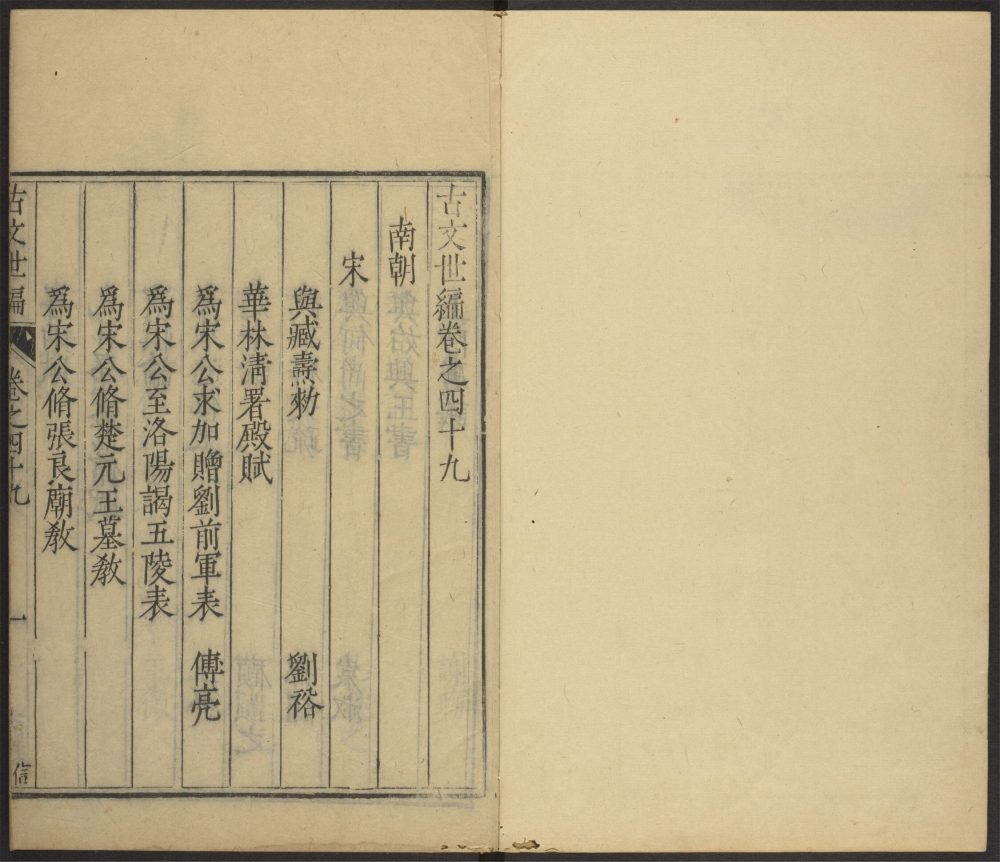 古文世編卷之四十九
南朝
宋
與臧燾勑 劉裕
華林清署殿賦
為宋公求加贈劉前軍表 傅亮
為宋公至洛陽謁五陵表
為宋公脩楚元王墓教
為宋公脩張良廟教
古文世編 卷之四十九 一 信